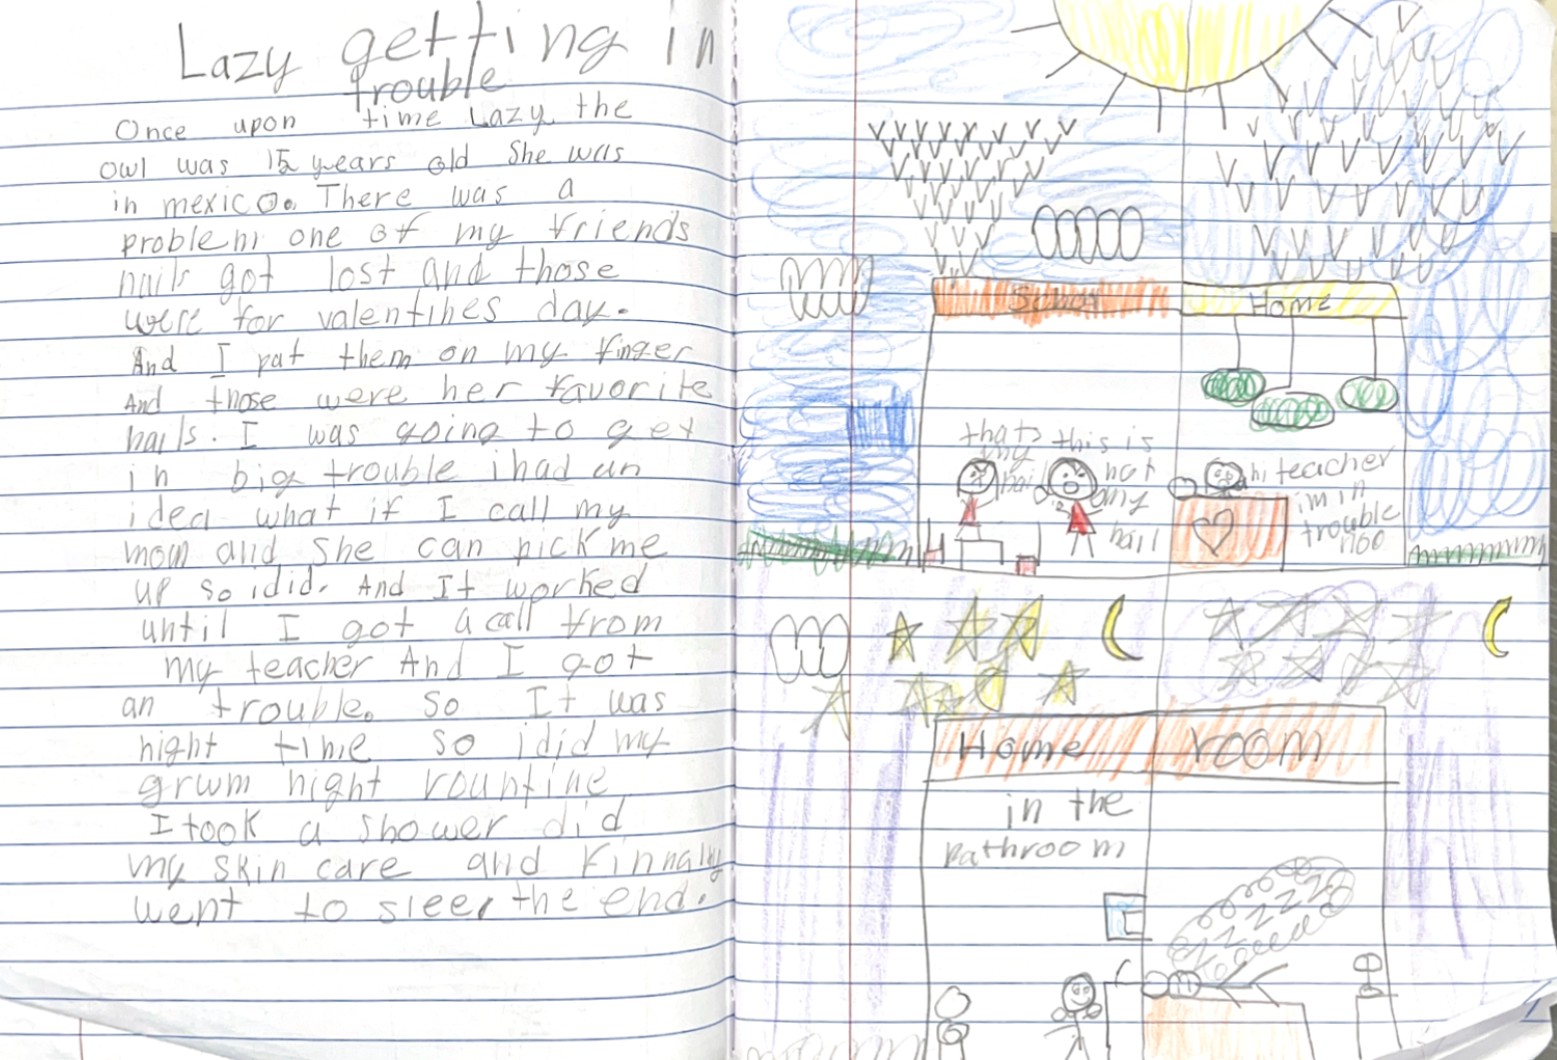 Lazy getting in
trouble
Once upon time Lazy the
owl was 15 years old She was
in mexico. There was a
problem one of my friends
nails got lost and those
were for valentines day.
And I put them on my finger
And those were her favorite
nails. I was going to get
in big trouble i had an
idea what if I call my
mom and she can pick me
up so i did. And It worked
until I got a call from
my teacher And I got
an trouble. So It was
night time so i did my
grwm night rountine
I took a shower did
my skin care and Finnaly
went to sleep the end.
School Home
thats my nail
this is not my nail
hi teacher
im in
trouble
noo
Home room
in the
Bathroom
ZZZZZZZ